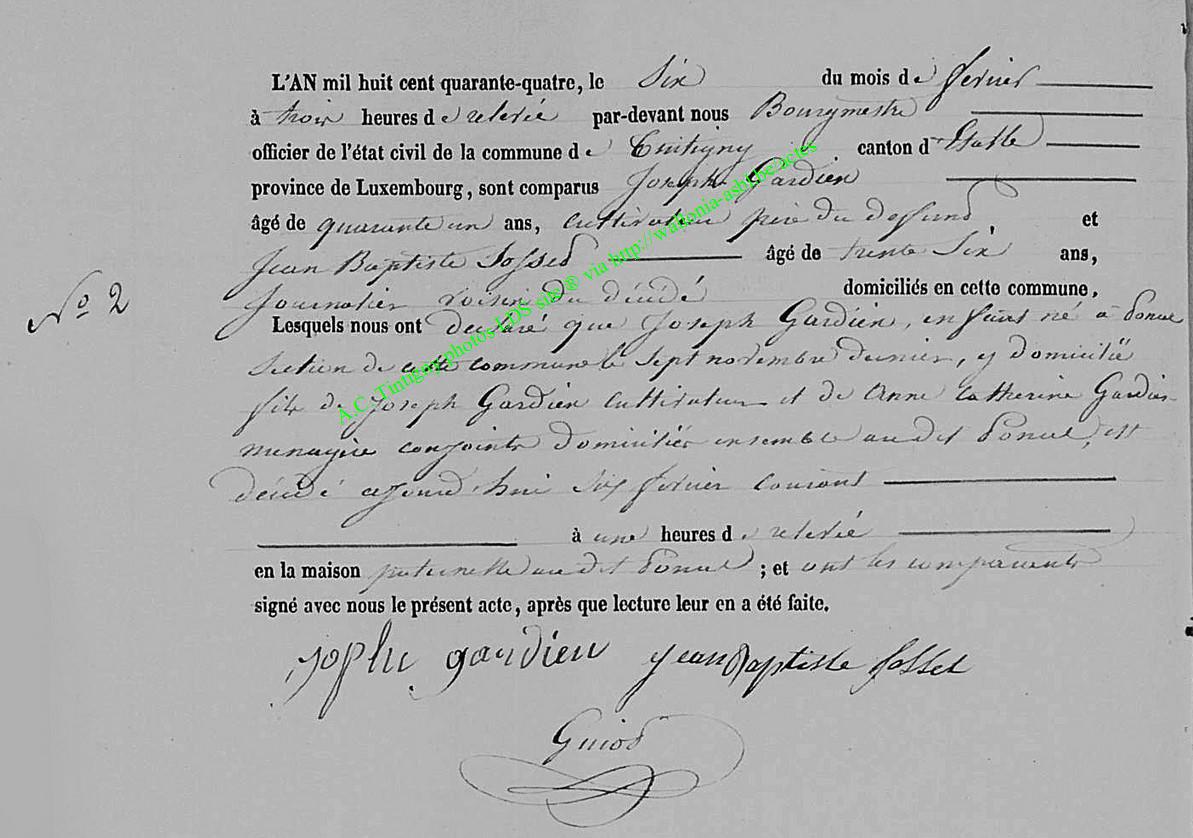 L'AN mil huit cent quarante-quatre, le Six du mois de fevrier
à trois heures de relevée par-devant nous Bourgmestre
officier de l'état civil de la commune de Tintigny canton d'Etalle
province de Luxembourg, sont comparus Joseph Gardien
âgé de quarante un ans, cultivateur père du defund et
Jean Baptiste Josset âgé de trente Six ans,
Journalier voisin du décédé domiciliés en cette commune,
N° 2
Lesquels nous ont declaré que Joseph Gardien, enfant né à Ponsel
Section de cette commune le Sept novembre dernier, y domicilié
fils de Joseph Gardien Cultivateur et de Anne Catherine Gardien
menagère conjoints domiciliés ensemble au dit Ponsel, est
décédé cejourd'hui Six fevrier Courant
à une heures de relevée
en la maison paternelle au dit Ponsel ; et ont les comparants
signé avec nous le présent acte, après que lecture leur en a été faite.
Joseph gardien Jean Baptiste Josset
Guiot
A.C. Tintigny photos LDS site ® via http://wallonia-asbl.be/actes